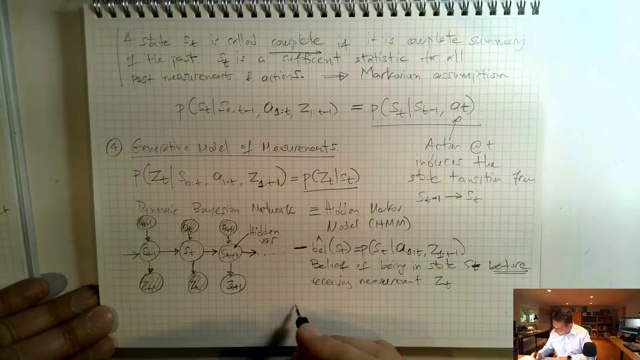 A state St is called complete if it is complete summary
of the past St is a sufficient statistic for all
past measurements & actions. ⟹ Markovian assumption
p(St|S0:t-1, a1:t, z1:t-1) = p(St|St-1, at)
Action @ t
induces the
state transition from
St-1 → St
④ Generative Model of Measurements
p(Zt|S0:t, a1:t, Z1:t-1) = p(Zt|St)
Dynamic Bayesian Network ≡ Hidden Markov
Model (HMM)
at-1 at at+1
Hidden
var
St-1 St St+1 ...
Zt-1 Zt Zt+1
- bel(St) = p(St|a1:t, Z1:t-1)
Belief of being in state St before
receiving measurement Zt